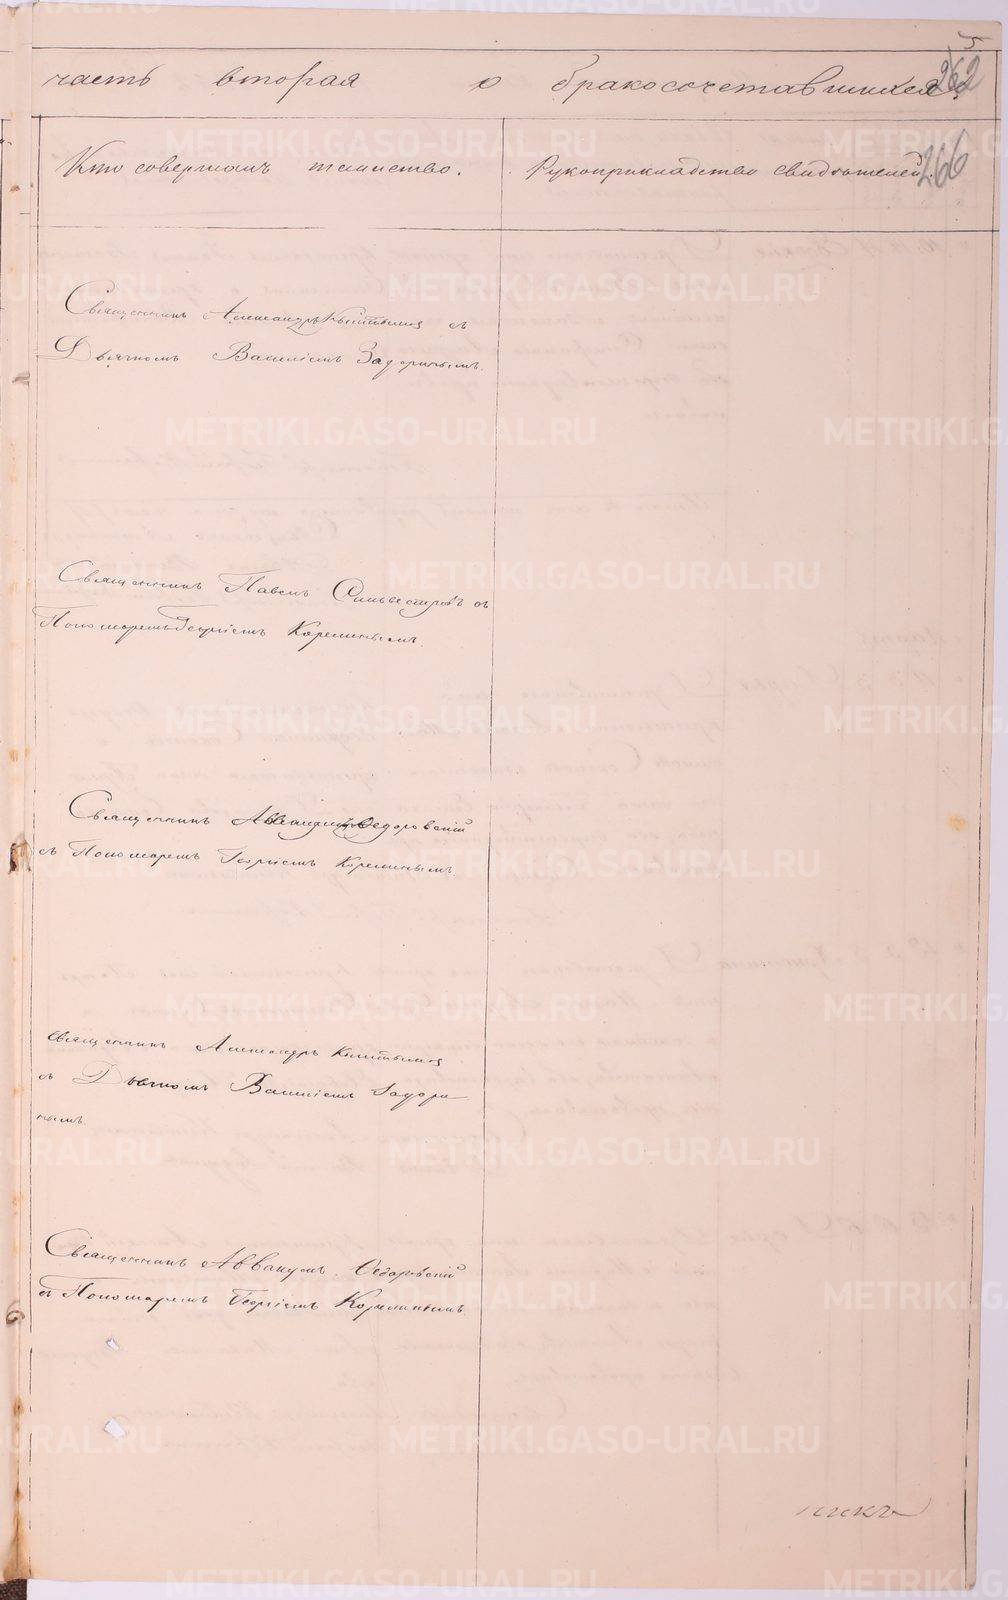 часть вторая о бракосочетавшихся
262
266
Кто совершалъ таинство.
Рукоприкладство свидѣтелей.
Священникъ Александръ съ
Дьячкомъ Василіемъ Задоринымъ.
Священникъ Павелъ Сильвестровъ съ
Пономаремъ Георгіемъ Корелинымъ.
Священникъ Ѳедоровскій
съ Пономаремъ Георгіемъ Корелинымъ.
Священникъ Александръ
съ Дьячкомъ Василіемъ Задори
нымъ.
Священникъ Аввакумъ Ѳедоровскій
съ Пономаремъ Георгіемъ Корелинымъ
METRIKI.GASO-URAL.RU